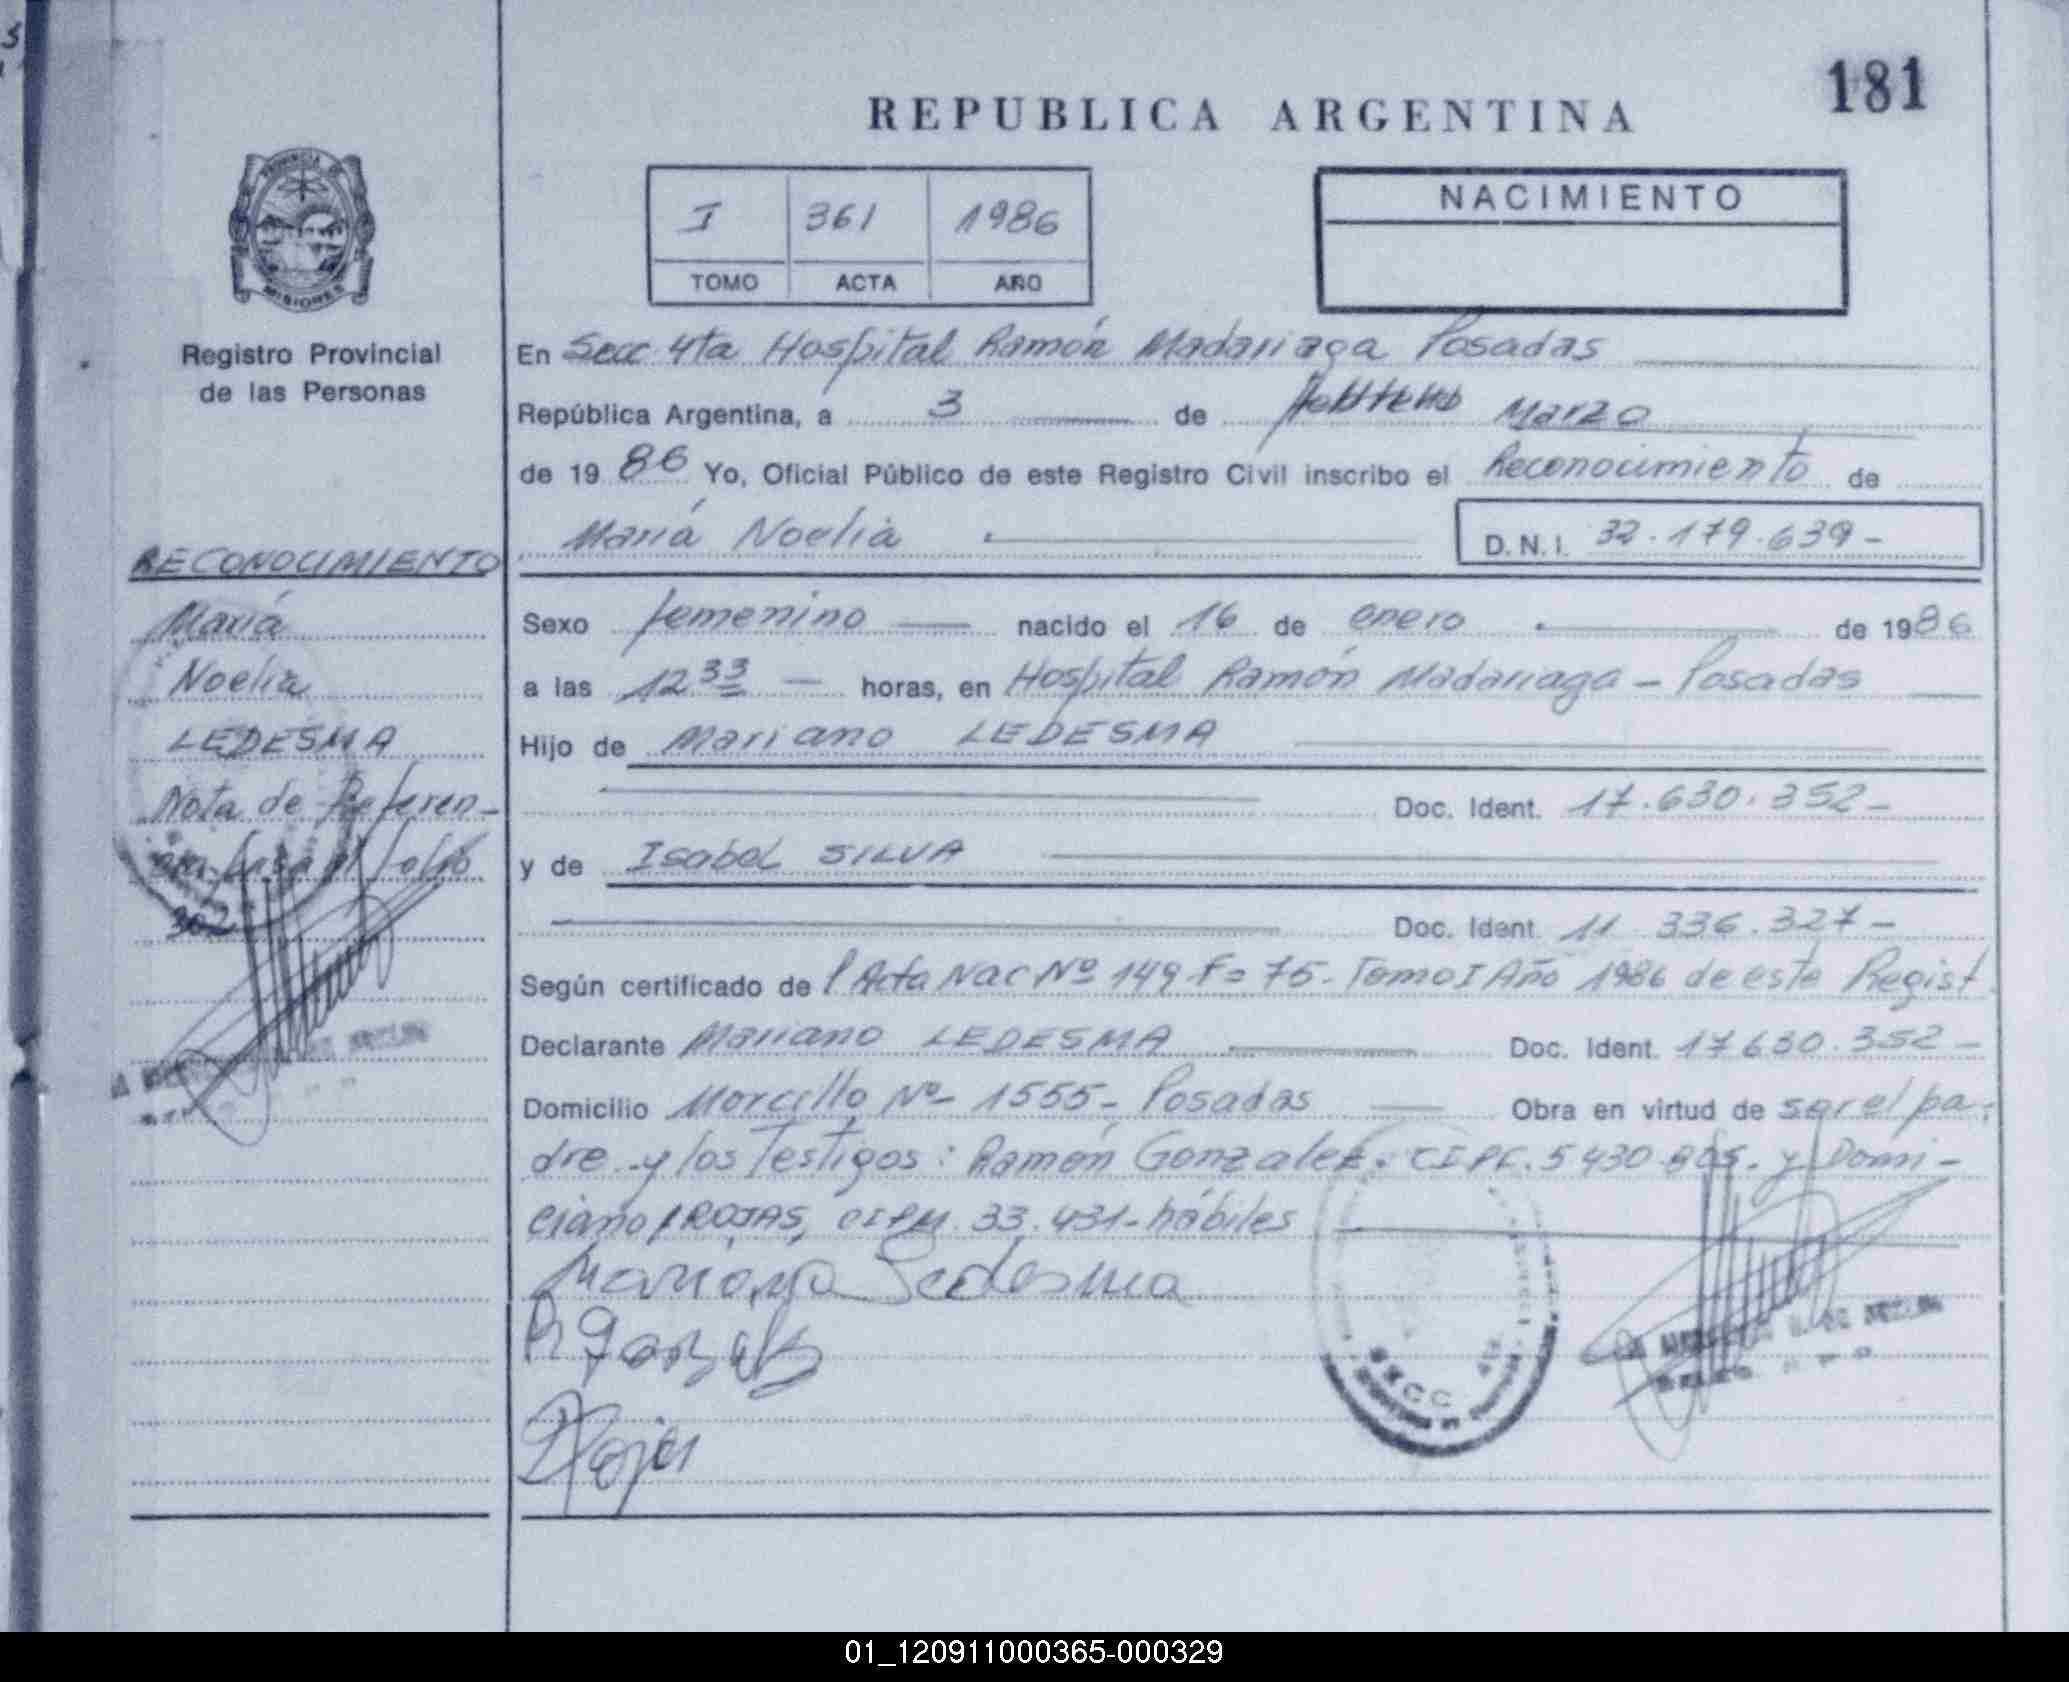 181
REPUBLICA ARGENTINA
PROVINCIA
MISIONES
Registro Provincial
de las Personas
I 361 1986
TOMO ACTA AÑO
NACIMIENTO
En Secc 4ta Hospital Ramón Madariaga Posadas
República Argentina, a 3 de Marzo
de 1986 Yo, Oficial Público de este Registro Civil inscribo el Reconocimiento de
María Noelia D.N.I. 32.179.639-
Sexo femenino nacido el 16 de enero de 1986
a las 12 33 horas, en Hospital Ramón Madariaga - Posadas
Hijo de Mariano LEDESMA
Doc. Ident. 17.630.352-
y de Isabel SILVA
Doc. Ident 11 336.327-
Según certificado de l Acta Nac Nº 149 F= 75- Tomo I Año 1986 de este Regist.
Declarante Mariano LEDESMA Doc. Ident. 17630.352-
Domicilio Morcillo Nº 1555- Posadas Obra en virtud de ser el pa-
dre y los Testigos: Ramón Gonzalez. CIPC. 5430 y Domi-
ciano ROJAS, CIPM. 33.431-hábiles
Mariano Ledesma
R Gonzalez
DRojas
SECC. 4ta
RECONOCIMIENTO
María
Noelia
LEDESMA
Nota de Referen-
al folio
302
01_120911000365-000329